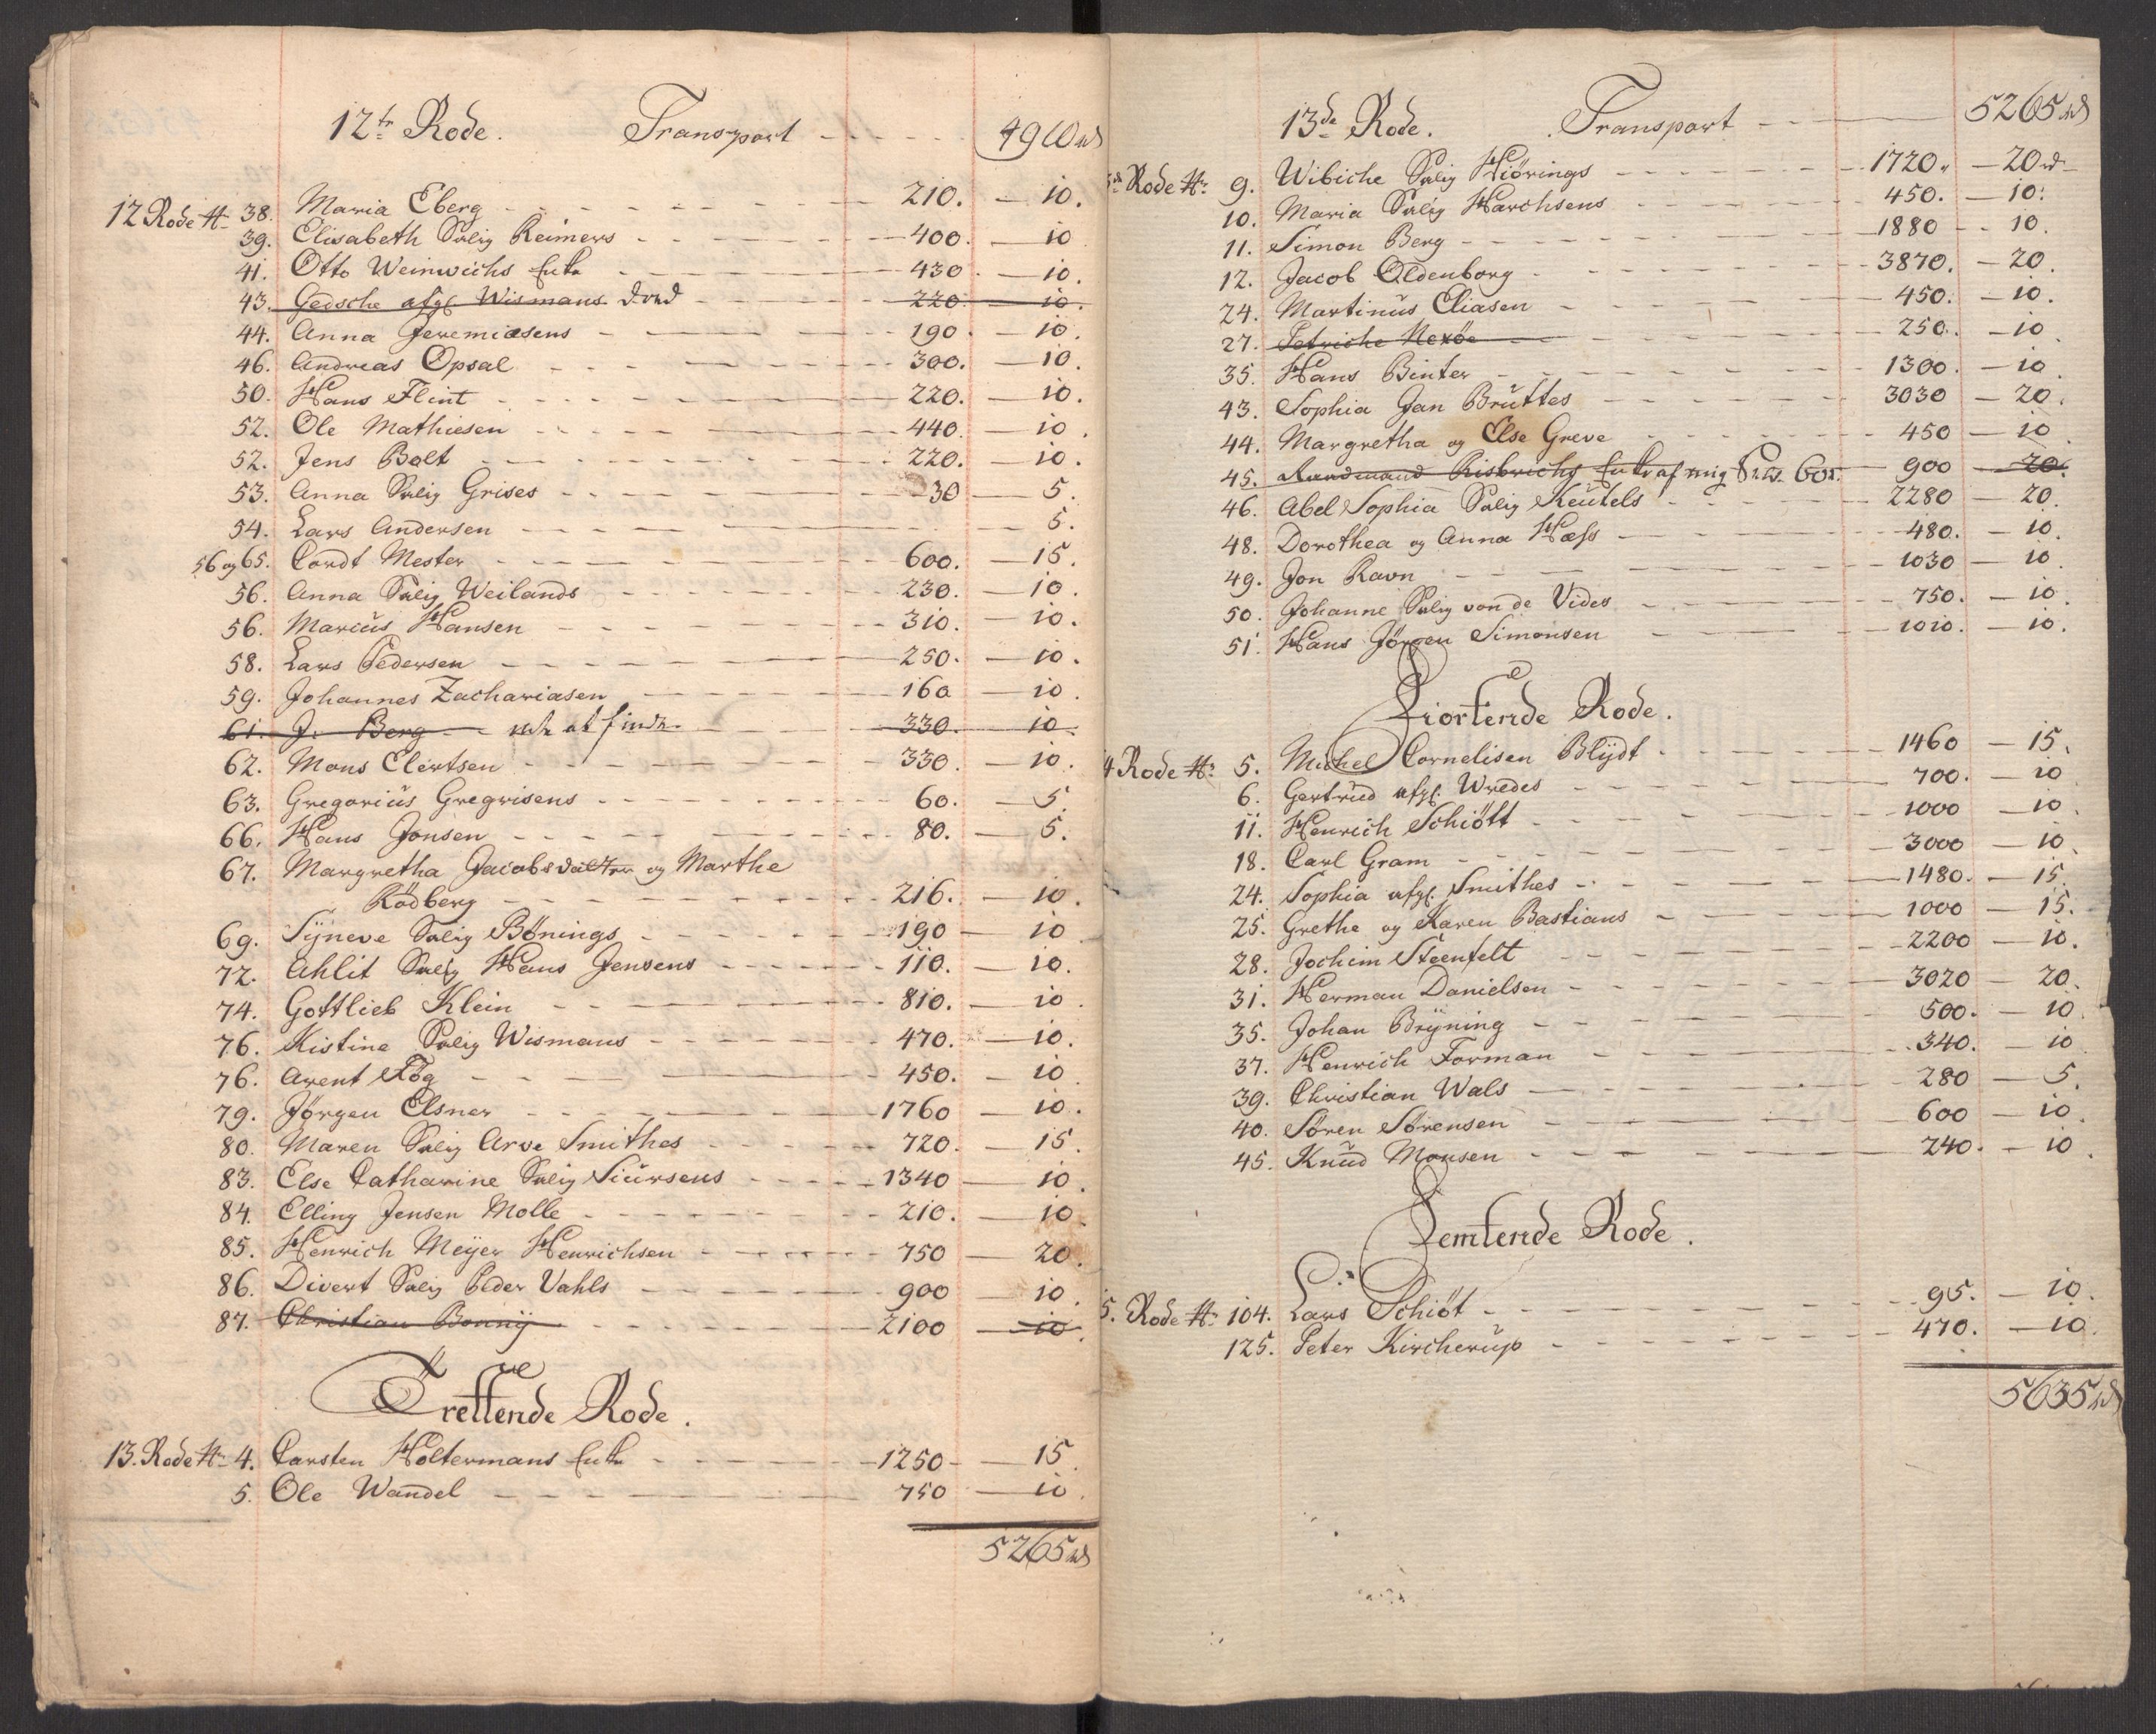 12te Rode. Transport - - - 4910 rd
12 Rode No 38. Maria Eberg - - - 210. - 10.
39. Elisabeth Salig Reimers - - - 400. - 10
41. Otto Weinwichs Enke - - - 430. - 10.
43. Gedsche afg. Wismans død - - - 220. - 10.
44. Anna Jeremiasens - - - 190. - 10.
46. Andreas Opsal - - - 300. - 10.
50. Hans Flint - - - 220. - 10.
52. Ole Mathiesen - - - 440. - 10.
52. Jens Bolt - - - 220. - 10.
53. Anna Salig Grises - - - 30 - 5.
54. Lars Andersen - - - 5.
56 og 65. Cordt Mester - - - 600. - 15.
56. Anna Salig Weilands - - - 230. - 10.
56. Marcus Hansen - - - 310. - 10.
58. Lars Pedersen - - - 250. - 10.
59. Johannes Zachariasen - - - 160 - 10.
61. J: Berg - - - 330. - 10.
62. Mons Elertsen - - - 330. - 10.
63. Gregorius Gregrisens - - - 60. - 5.
66. Hans Jonsen - - - 80. - 5.
67. Margretha Jacobsdatter og Marthe
Rödberg - - - 216. - 10.
69. Syneve Salig Bönings - - - 190 - 10
72. Ahlit Salig Hans Jensens - - - 110. - 10.
74. Gottlieb Klein - - - 810. - 10.
76. Kistine Salig Wismans - - - 470. - 10.
76. Arent Føg - - - 450. - 10.
79. Jørgen Elsner - - - 1760 - 10.
80. Maren Salig Arve Smithes - - - 720. - 15
83. Else Catharine Salig Siursens - - - 1340 - 10.
84. Elling Jensen Molle - - - 210. - 10.
85. Henrich Meyer Henrichsen - - - 750 - 20.
86. Divert Salig Peder Vahls - - - 900 - 10.
87. Christian Bonnij - - - 2100 - 10.
Trettende Rode.
13. Rode No 4. Carsten Holtermans Enke - - - 1250 - 15.
5. Ole Wandel - - - 750 - 10.
5265 rd
13de Rode. Transport - - - 5265 rd
Rode No 9. Wibiche Salig Hiörings - - - 1720. - 20 rd
10. Maria Salig Harchsens - - - 450. - 10.
11. Simon Berg - - - 1880 - 10.
12. Jacob Oldenborg - - - 3870. - 20.
24. Martinus Eliasen - - - 450. - 10.
27. Petriche Nexöe - - - 250. - 10
35. Hans Binter - - - 1300. - 10.
43. Sophia Jan Bruttes - - - 3030 - 20.
44. Margretha og Else Greve - - - 450 - 10
45. Raadmand Risbrichs Enke af mig - 900 - 20.
46. Abel Sophia Salig Keutels - - - 2280 - 20.
48. Dorothea og Anna Hæss - - - 480. - 10.
49. Jon Ravn - - - 1030 - 10.
50. Johanne Salig von de Vides - - - 750. - 10.
51. Hans Jörgen Simonsen - - - 1010. - 10.
Fiortende Rode.
4 Rode No 5. Michel Cornelisen Blydt - - - 1460 - 15.
6. Gertrud afg. Wredes - - - 700. - 10
11. Henrich Schiött - - - 1000 - 10.
18. Carl Gram - - - 3000 - 10.
24. Sophia afg. Smithes - - - 1480. - 15.
25. Grethe og Karen Bastians - - - 1000 - 15.
28. Jochim Steenfelt - - - 2200 - 10.
31. Herman Danielsen - - - 3020 - 20.
35. Johan Bryning - - - 500. - 10.
37. Henrich Forman - - - 340. - 10
39. Christian Wals - - - 280 - 5.
40. Søren Sørensen - - - 600 - 10.
45. Knud Monsen - - - 240. - 10.
Femtende Rode.
5. Rode No 104. Lars Schiöt - - - 95. - 10.
125. Peter Kircherup - - - 470. - 10.
5635 rd